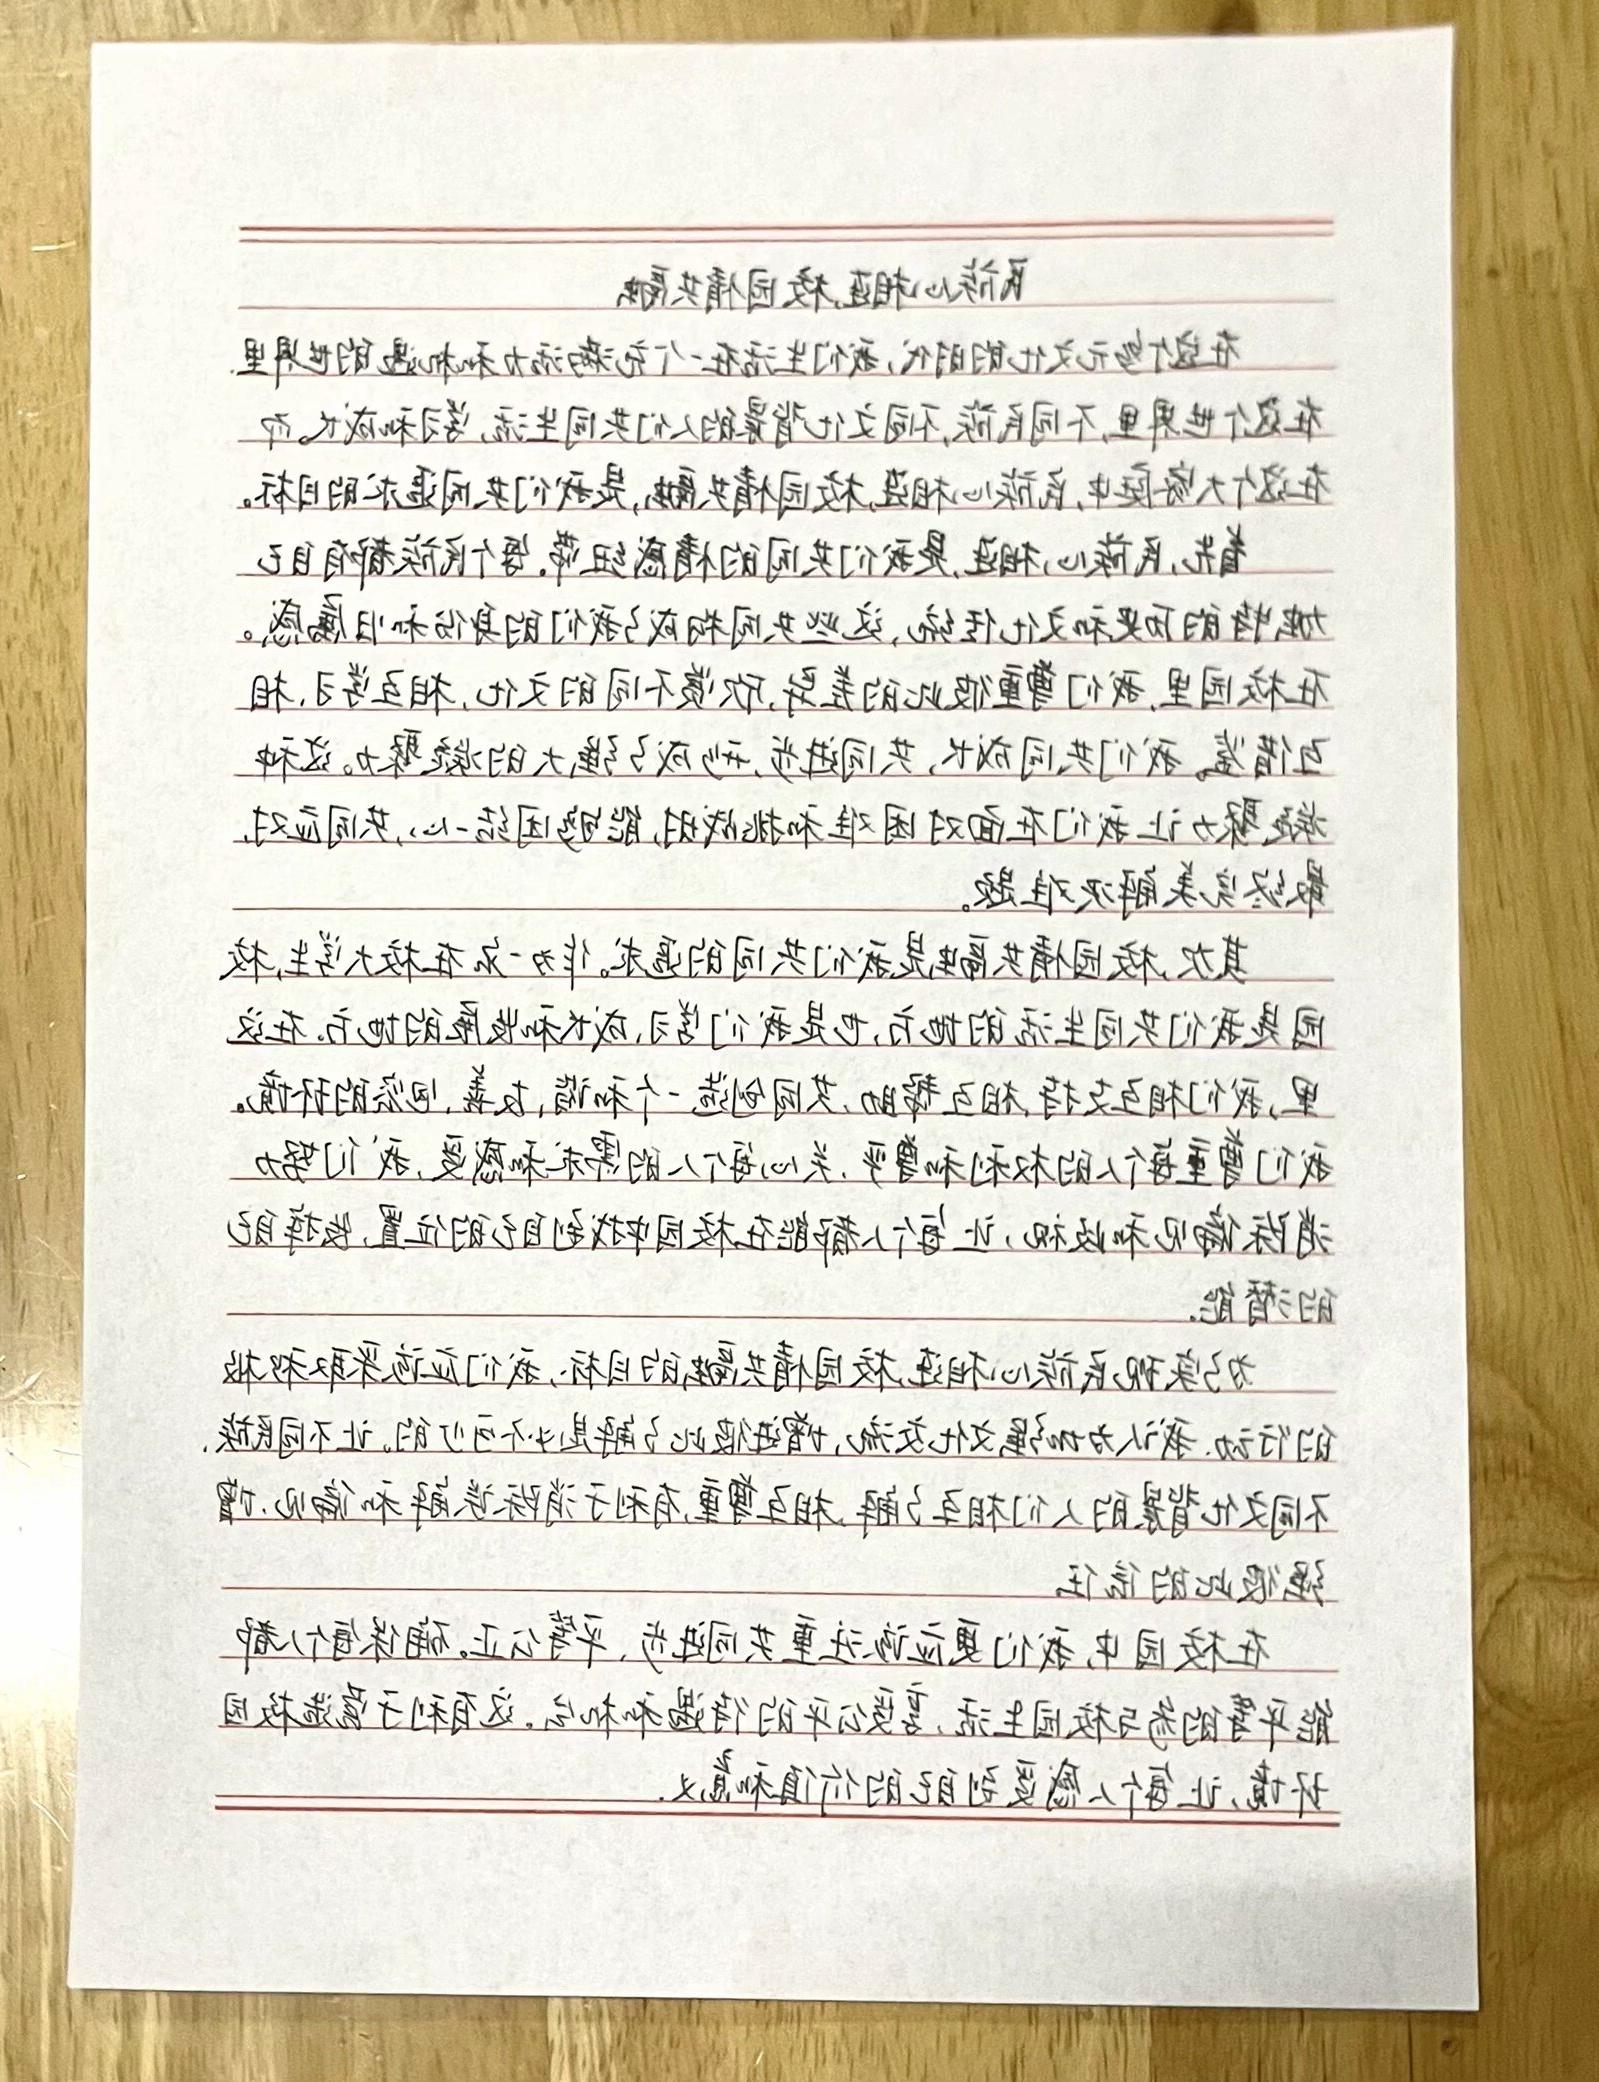 民族心相连,校园情共融
在这个多元文化的时代,我们生活在一个充满活力和机遇的世界里.
在这个世界里,不同民族,不同文化背景的人们共同生活,学习和成长。而
在这个大家庭中,民族心相连,校园情共融,是我们共同追求的目标。
首先,民族心相连,是我们共同的情感纽带。每个民族都有自己
独特的历史和文化传统,这些共同构成了我们的身份和归属感。
在校园里,我们尊重彼此的差异,欣赏不同的文化,相互学习、相
互借鉴。我们共同成长,共同进步,形成了强大的凝聚力。这种
凝聚力让我们在面对困难和挑战时,能够团结一心,共同应对,
最终完美解决难题。
其次,校园情共融是我们共同的追求。作为一名在校大学生,校
园是我们共同生活的地方,也是我们学习、成长和发展的地方.在这
里,我们相互支持,相互帮助,共同创造一个和谐、友善、包容的环境。
我们尊重每个人的权利和尊严,关心每个人的需求和感受,我们努力
消除偏见和歧视,让每个人都能在校园中找到自己的位置,发挥自己
的潜能.
为了实现民族心相连,校园情共融的目标,我们应该采取积极
的行动.我认为加强文化交流,增进彼此了解是必不可少的。让不同民族、
不同文化背景的人们相互了解,相互尊重,有利于消除误解和偏见,增
强彼此的信任.
在校园中,我们更应该注重共同进步、平等公正。确保每个人都
能平等的参与校园生活,享受公平的待遇和机会。这有利于营造校园
环境,让每个人感受到自己的价值和意义.